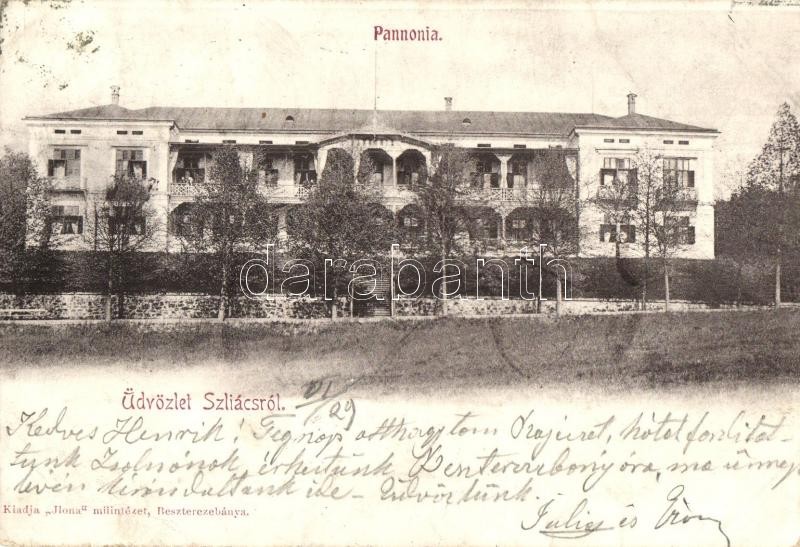 Pannonia.
darabanth
Üdvözlet Szliácsról. VI/29
Kedves Henrik! Tegnap otthagytam
hátat fordítot-
tunk Zsolnának, érkeztünk Beszterczebányára, ma ünnep
leven kirándultunk ide - Üdvözlünk.
Kiadja „Ilona" műintézet, Beszterczebánya.
és